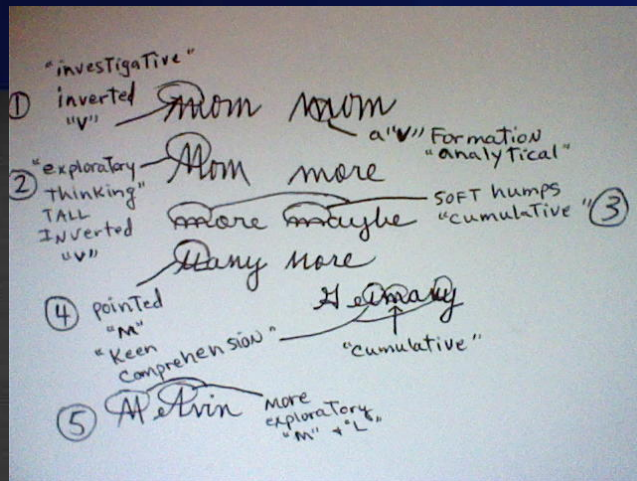 "investigative"
① inverted "V" mom mom
a "V" Formation "analytical"
② "exploratory Thinking" Mom more
TALL INverted "V" more maybe
SOFT humps "cumulative" ③
Many More
④ pointed "M"
"Keen Comprehension"
Germany
"cumulative"
⑤ Melvin
More exploratory "M" + "L"s